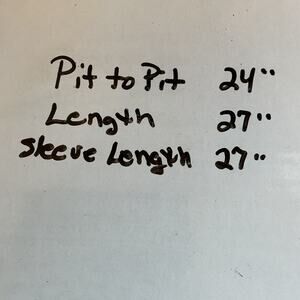 Pit to Pit 24"
Length 27"
Sleeve Length 27"